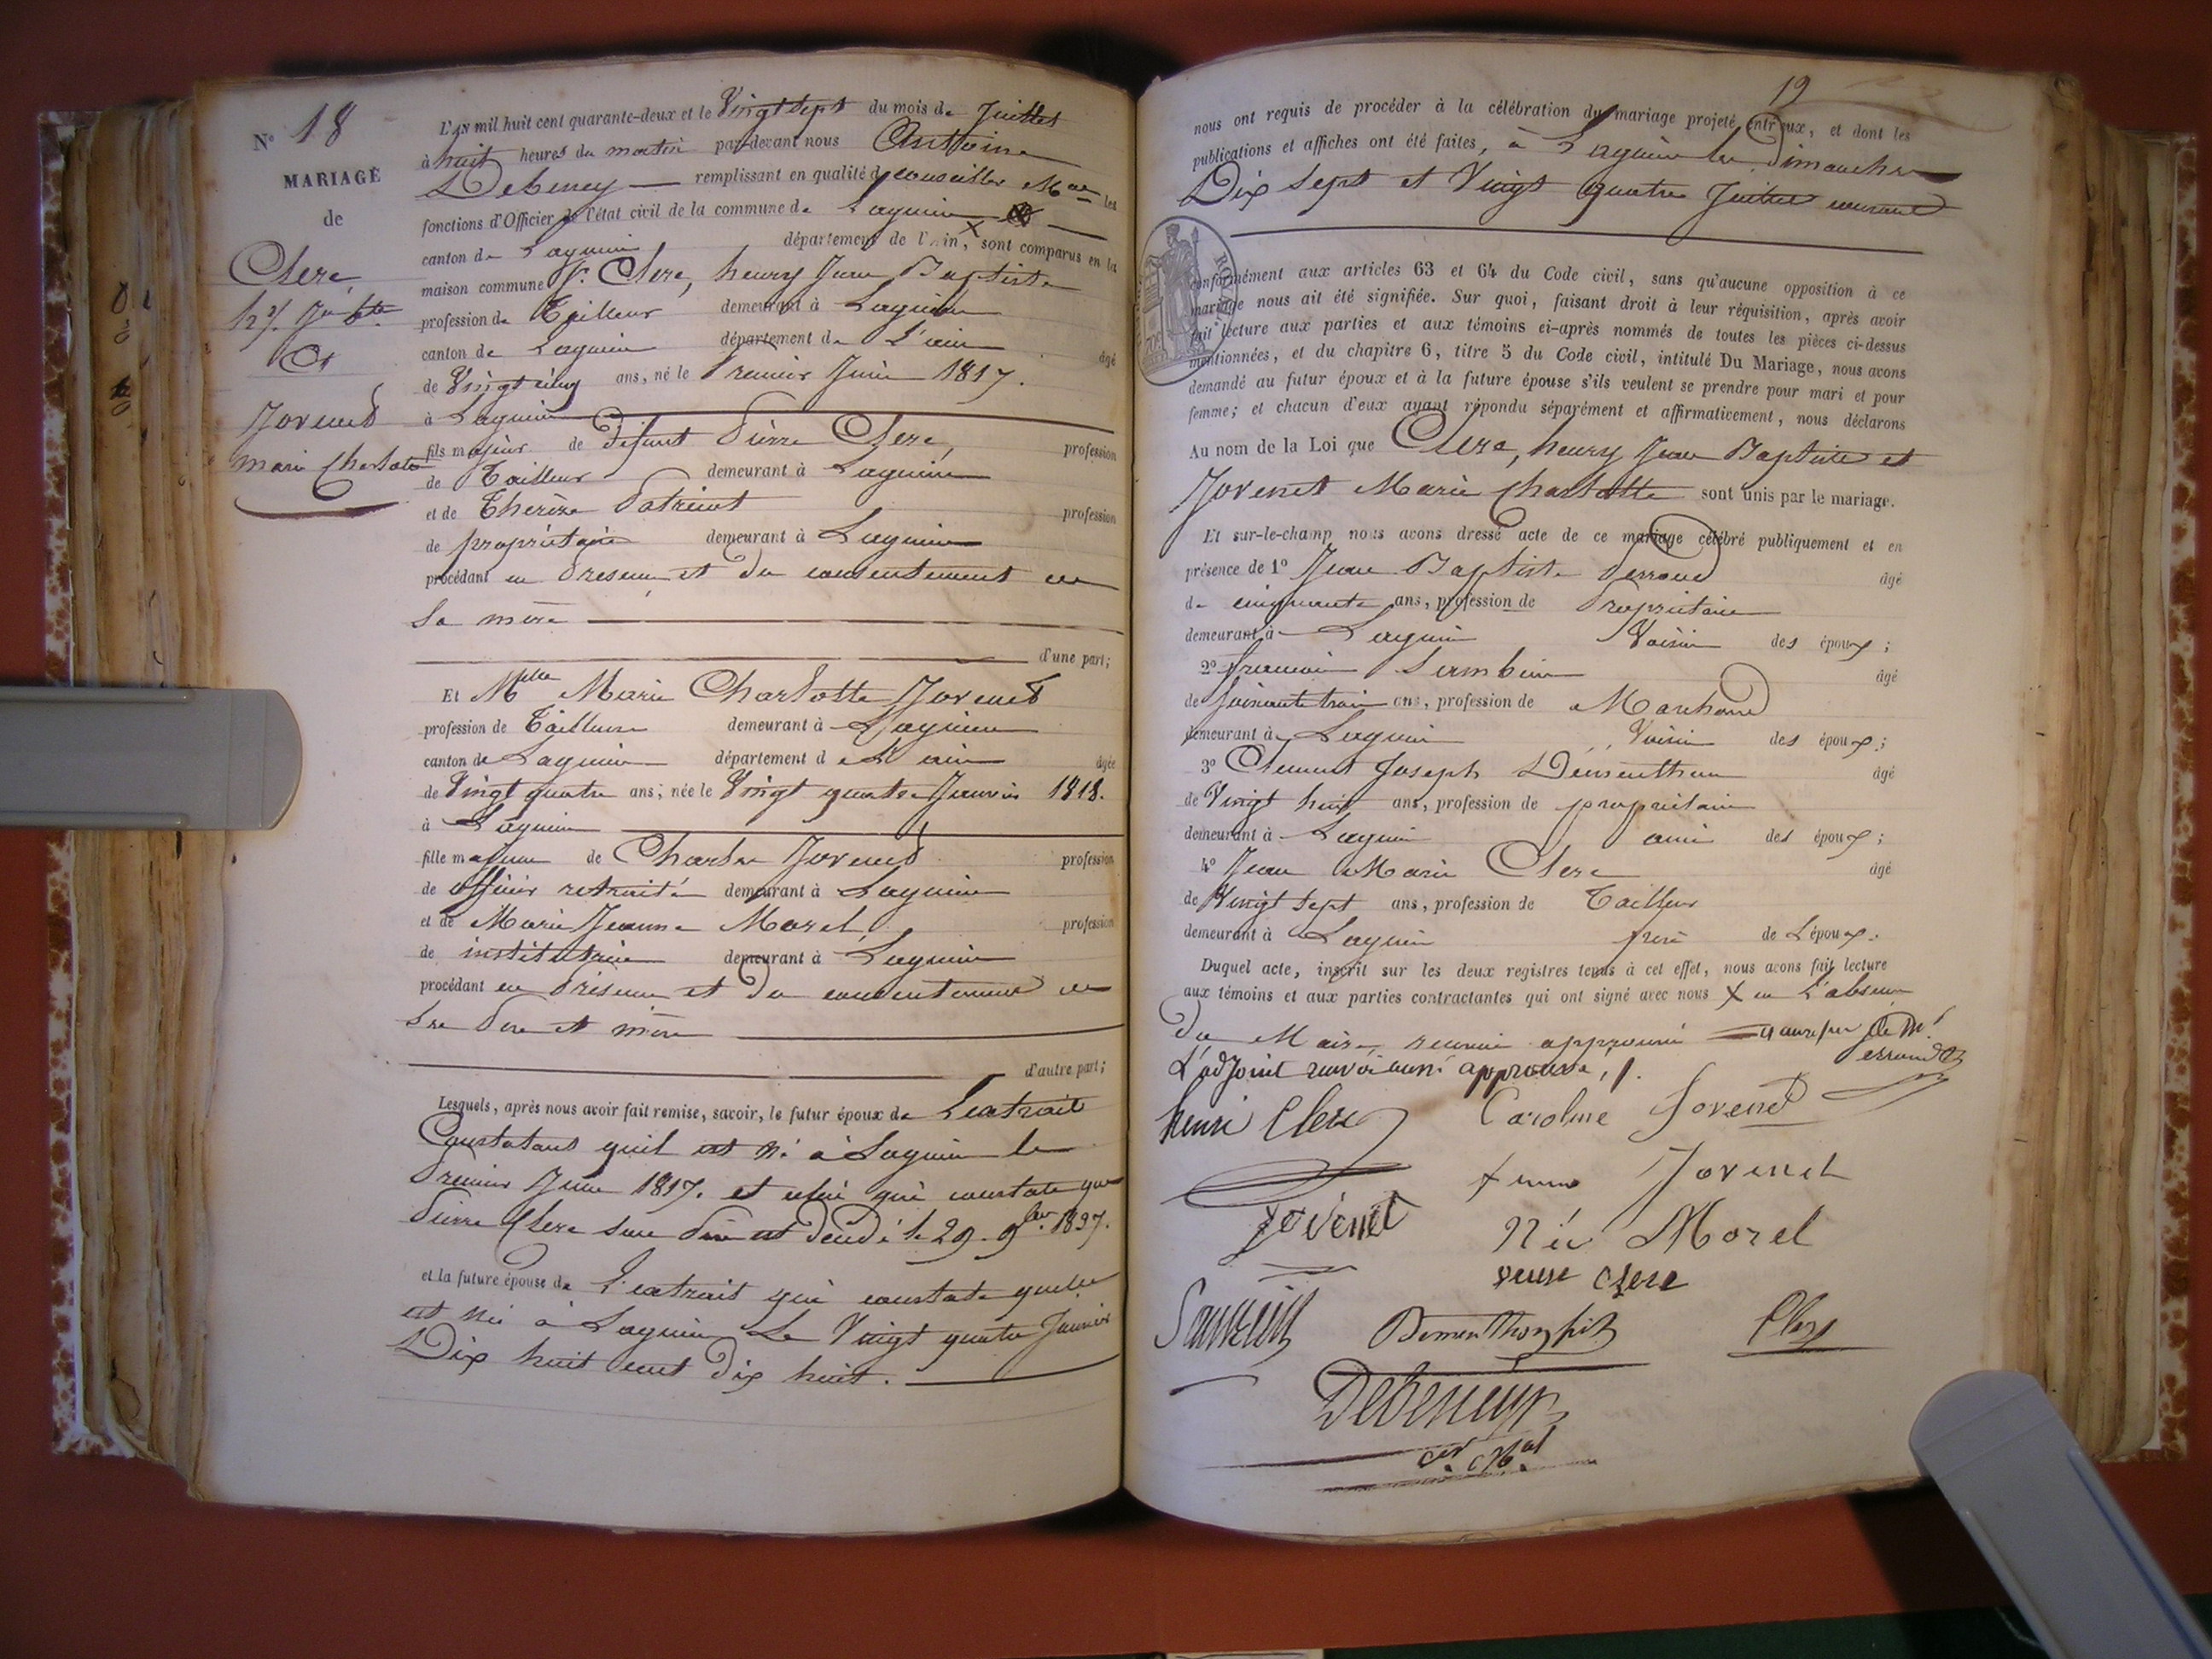 N° 18
MARIAGE
de
Clerc,
hy Jn Bte
Et
Jovenet
Marie Charlotte
L'an mil huit cent quarante-deux et le Vingt sept du mois de Juillet
à huit heures du matin par-devant nous Antoine
Debeney remplissant en qualité de conseiller Mal les
fonctions d'Officier de l'état civil de la commune de Lagnieu
canton de Lagnieu département de l'Ain, sont comparus en la
maison commune Sr. Clerc, henry Jean Baptiste
profession de Tailleur demeurant à Lagnieu
canton de Lagnieu département de L'ain âgé
de Vingt cinq ans, né le Premier Juin 1817.
à Lagnieu
fils majeur de défunt Pierre Clerc, profession
de Tailleur demeurant à Lagnieu
et de Thérèze Patrient profession
de propriétaire demeurant à Lagnieu
procédant en Présence et du consentement de
Sa mère
d'une part;
Et Melle Marie Charlotte Jovenet
profession de Tailleuse demeurant à Lagnieu
canton de Lagnieu département de L'ain âgée
de Vingt quatre ans; née le Vingt quatre Janvier 1818.
à Lagnieu
fille majeure de Charles Jovenet profession
de officier retraité demeurant à Lagnieu
et de Marie Jeanne Morel, profession
de institutrice demeurant à Lagnieu
procédant en Présence et du consentement de
Ses Père et mère
d'autre part;
Lesquels, après nous avoir fait remise, savoir, le futur époux de L'extrait
Constatant quil est né à Lagnieu le
Premier Juin 1817. et celui qui constate que
Pierre Clerc son Père est décédé le 29. 9bre. 1837.
et la future épouse de L'extrait qui constate quelle
est née à Lagnieu Le Vingt quatre Janvier
Dix huit cent dix huit.
19
nous ont requis de procéder à la célébration du mariage projeté entr'eux, et dont les
publications et affiches ont été faites, à Lagnieu les Dimanches
Dix Sept et Vingt quatre Juillet courant
conformément aux articles 63 et 64 du Code civil, sans qu'aucune opposition à ce
mariage nous ait été signifiée. Sur quoi, faisant droit à leur réquisition, après avoir
fait lecture aux parties et aux témoins ci-après nommés de toutes les pièces ci-dessus
mentionnées, et du chapitre 6, titre 5 du Code civil, intitulé Du Mariage, nous avons
demandé au futur époux et à la future épouse s'ils veulent se prendre pour mari et pour
femme; et chacun d'eux ayant répondu séparément et affirmativement, nous déclarons
Au nom de la Loi que Clerc, henry Jean Baptiste et
Jovenet Marie Charlotte sont unis par le mariage.
Et sur-le-champ nous avons dressé acte de ce mariage célébré publiquement et en
présence de 1° Jean Baptiste Perroud âgé
de cinquante ans, profession de Propriétaire
demeurant à Lagnieu Voisin des époux;
2° François âgé
de Soixante trois ans, profession de Marchand
demeurant à Lagnieu Voisin des époux;
3° Clement Joseph Dementhon âgé
de Vingt huit ans, profession de propriétaire
demeurant à Lagnieu ami des époux;
4° Jean Marie Clerc âgé
de Vingt Sept ans, profession de Tailleur
demeurant à Lagnieu frère de L'époux.
Duquel acte, inscrit sur les deux registres tenus à cet effet, nous avons fait lecture
aux témoins et aux parties contractantes qui ont signé avec nous X en L'absence
du Maire, renvoi approuvé
L'adjoint renvoi aussi approuvé,
henri Clerc Caroline Jovenet
femme Jovenet
Jovenet Née Morel
veuve Clerc
Dementhon fils Clerc
Debeney
cer. Mal